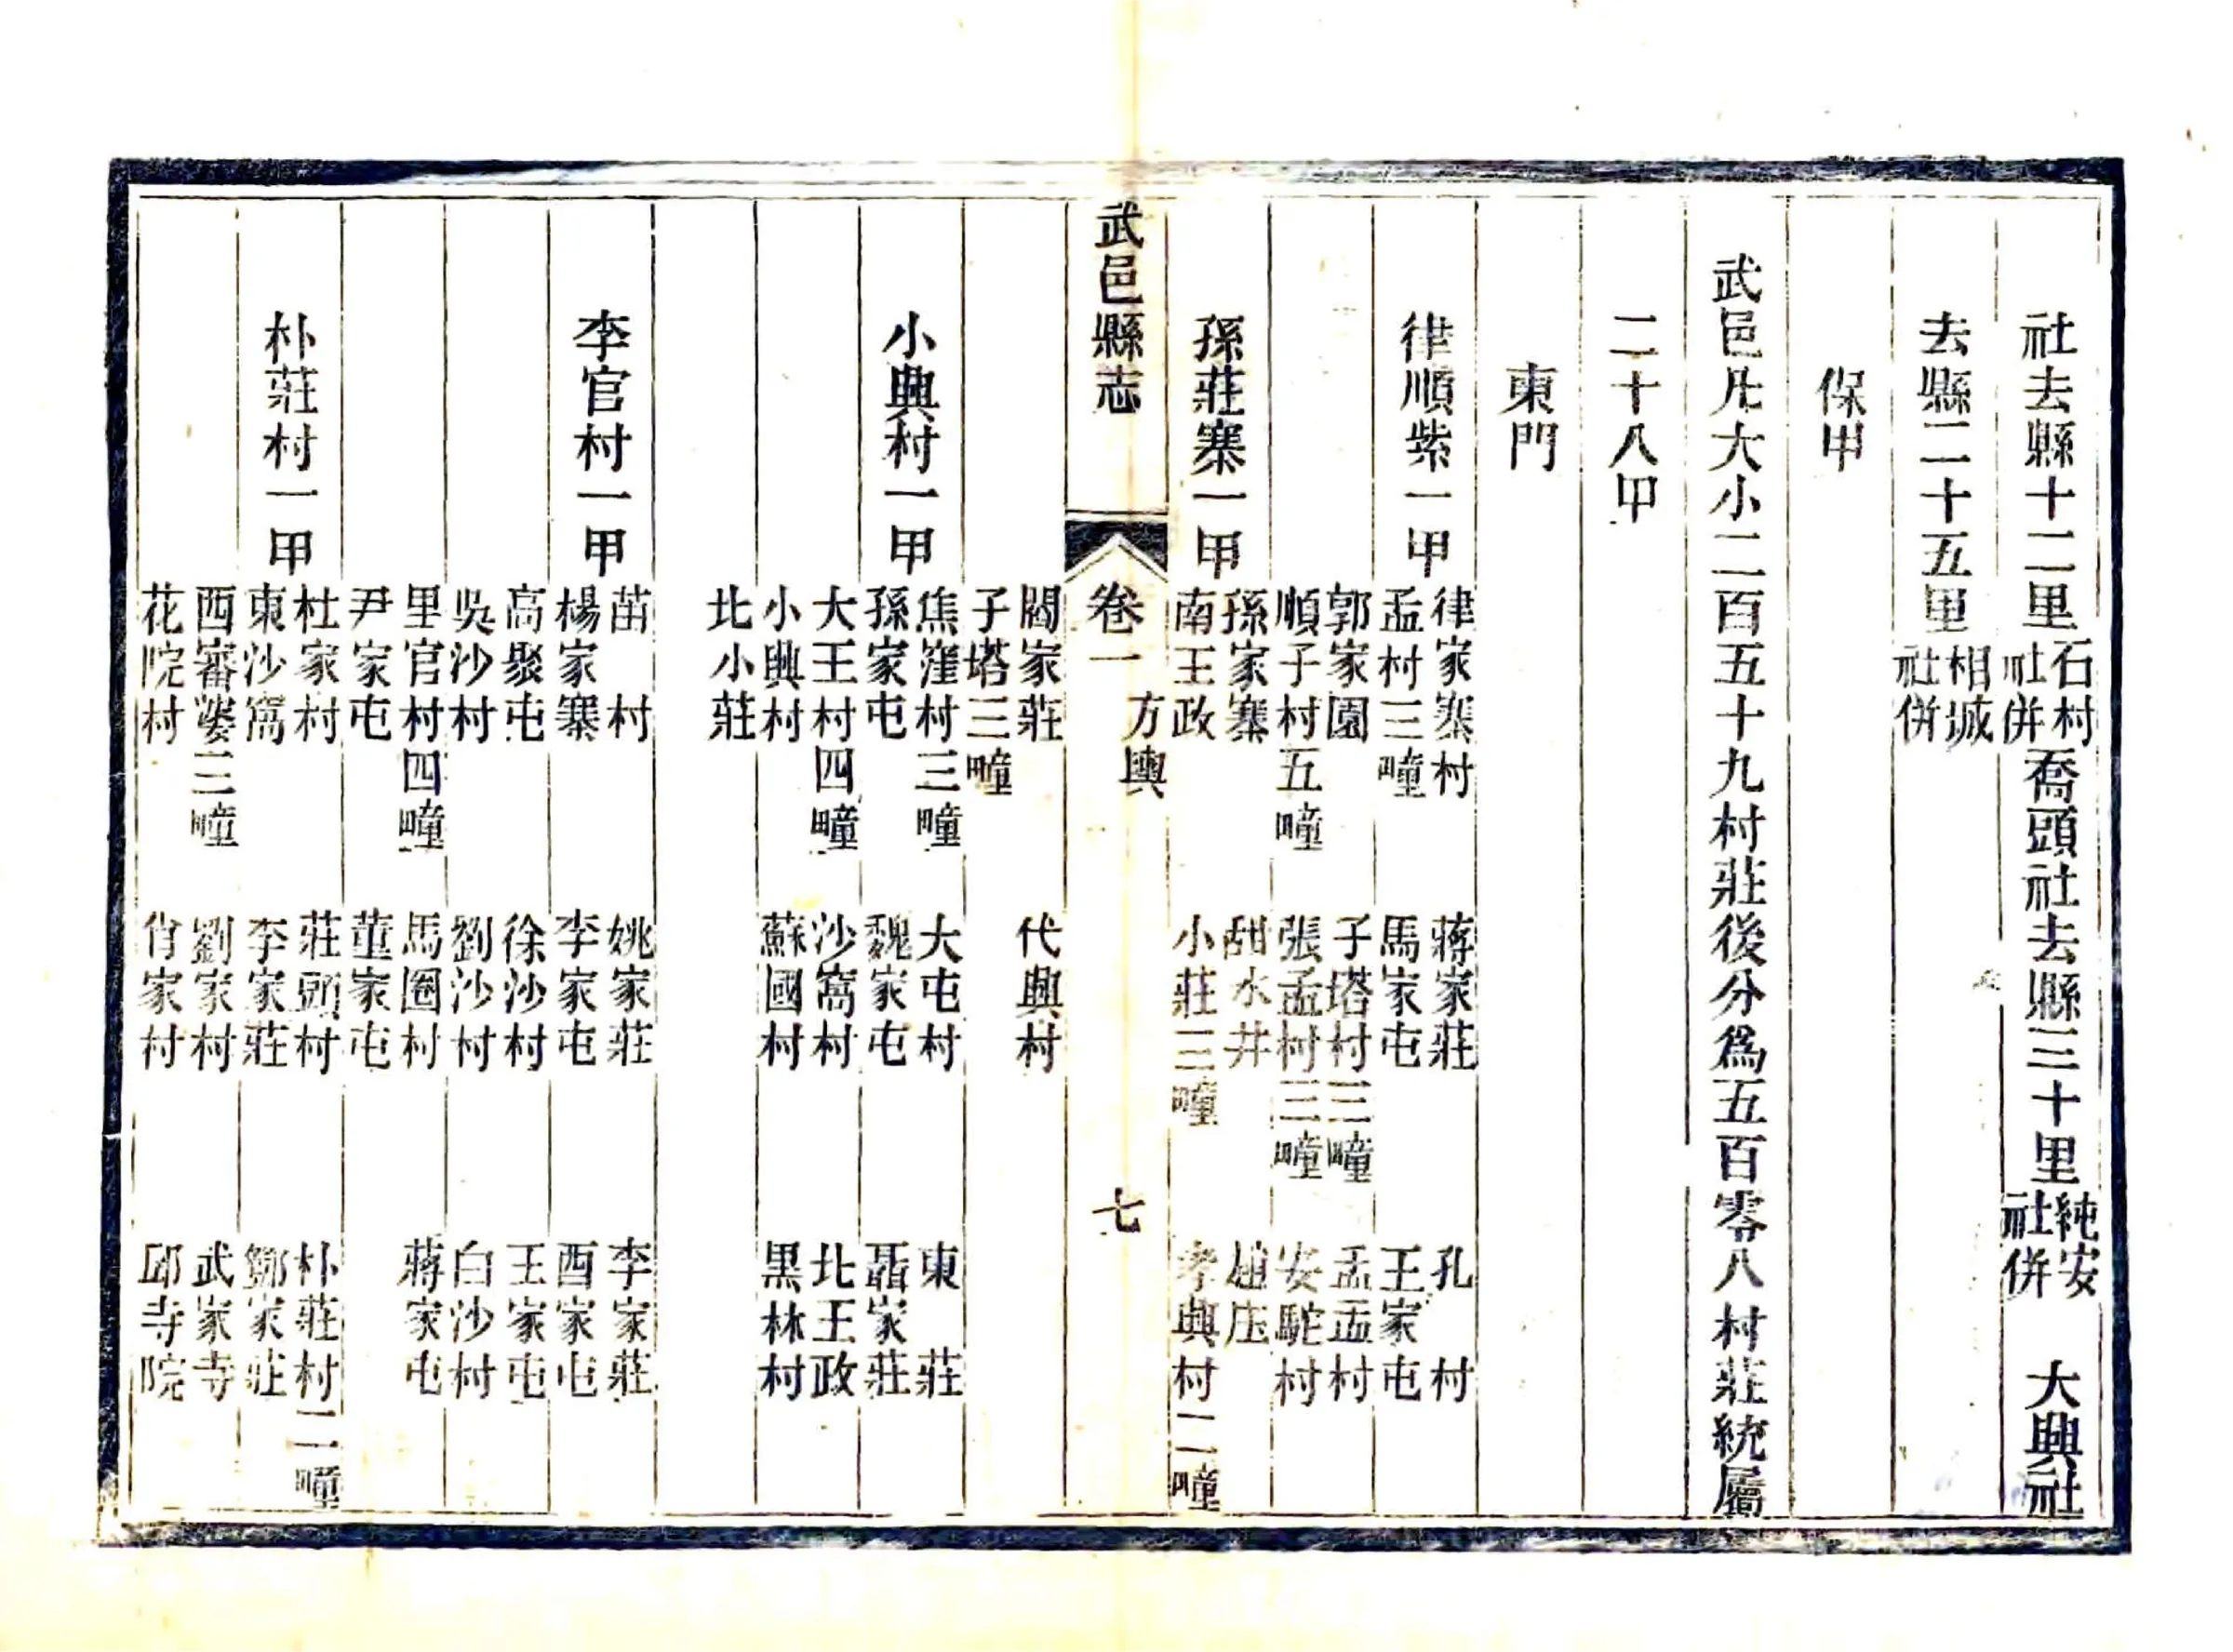 社去縣十二里石村社併喬頭社去縣三十里純安社併 大興社
去縣二十五里相城社併
保甲
武邑凡大小二百五十九村莊後分爲五百零八村莊統屬
二十八甲
東門
律順紫一甲
律家寨村 蔣家莊 孔村
孟村三疃 馬家屯 王家屯
郭家園 子塔村三疃 孟孟村
順子村五疃 張孟村三疃 安駝村
孫莊寨一甲
孫家寨 甜水井 趙庄
南王政 小莊三疃 孝興村二疃
武邑縣志 卷一 方輿 七
閻家莊 代興村
子塔三疃
小興村一甲
焦窪村三疃 大屯村 東莊
孫家屯 魏家屯 聶家莊
大王村四疃 沙窩村 北王政
小興村 蘇國村 黑林村
北小莊
李官村一甲
苗村 姚家莊 李家莊
楊家寨 李家屯 西家屯
高聚屯 徐沙村 王家屯
吳沙村 劉沙村 白沙村
里官村四疃 馬圈村 蔣家屯
尹家屯 董家屯
朴莊村一甲
杜家村 莊頭村 朴莊村二疃
東沙窩 李家莊 鄭家莊
西審婆三疃 劉家村 武家寺
花院村 肖家村 邱寺院